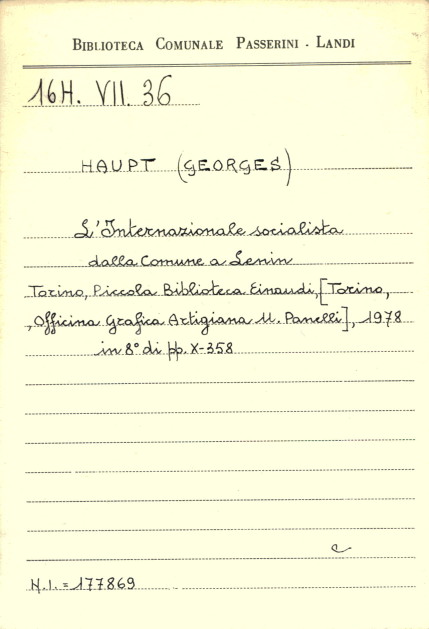 BIBLIOTECA COMUNALE PASSERINI - LANDI
16H. VII. 36
HAUPT (GEORGES)
L'Internazionale socialista
dalla Comune a Lenin
Torino, Piccola Biblioteca Einaudi, [Torino,
, Officina Grafica Artigiana U. Panelli], 1978
in 8° di pp. X-358
e
N.I. = 177869